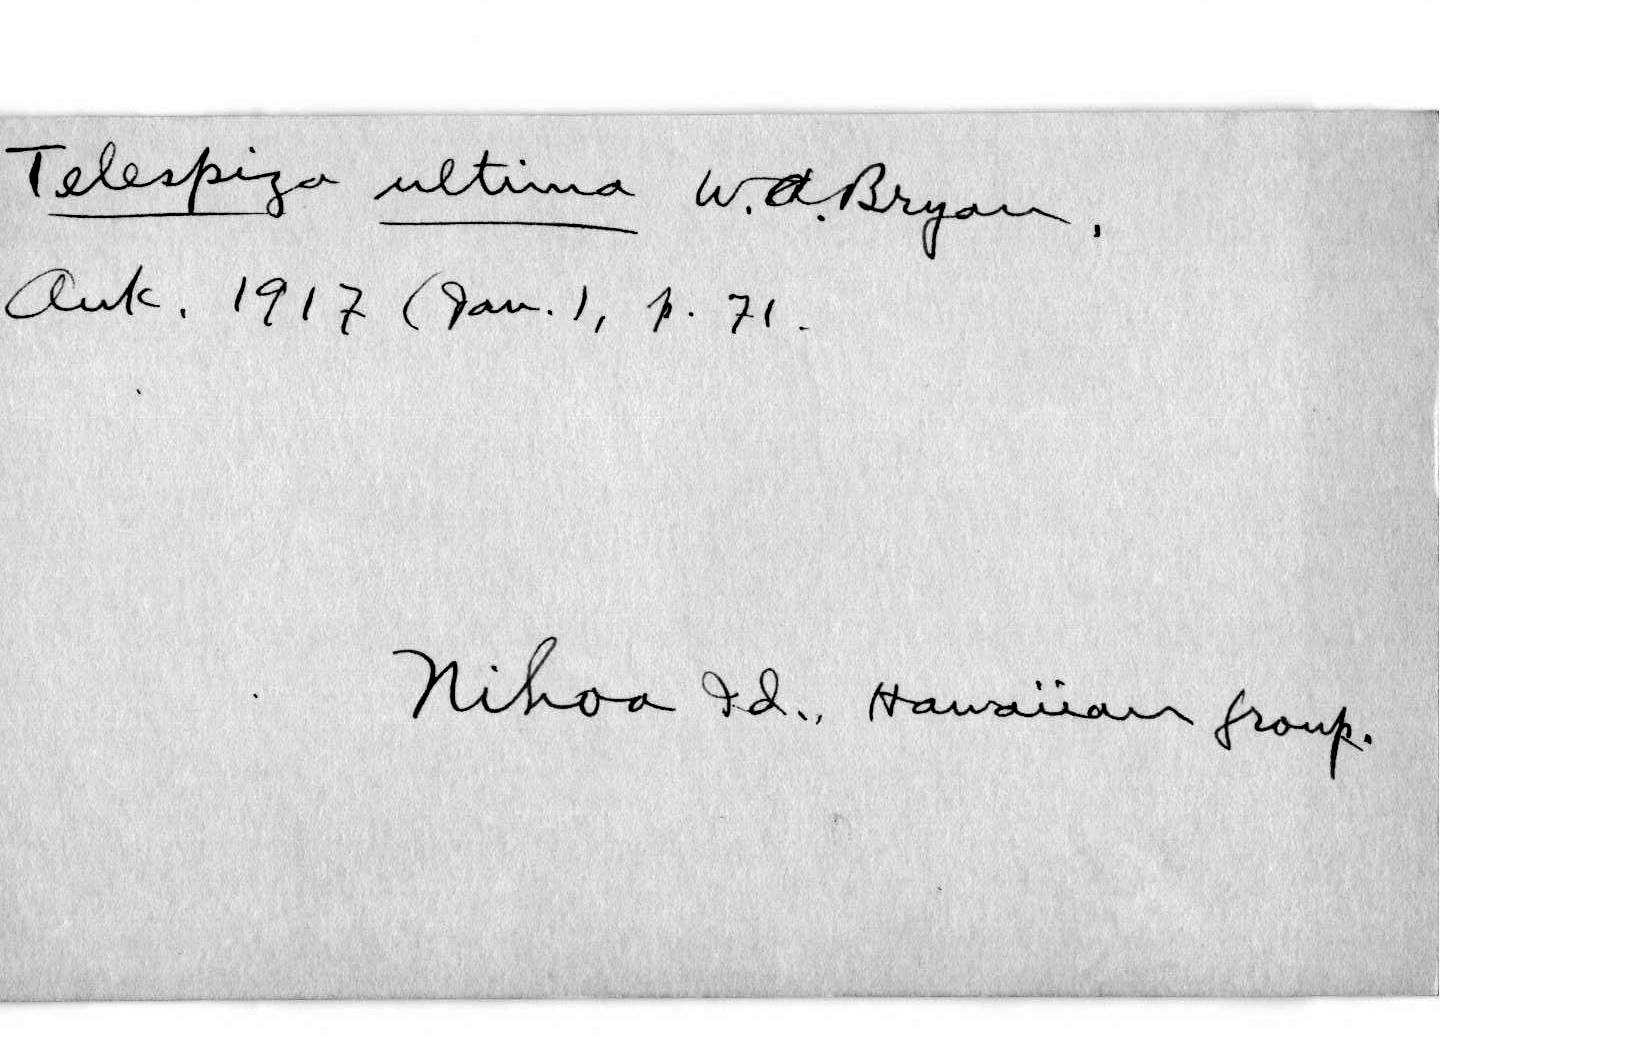 Telespiza ultima W.A. Bryan,
Auk. 1917 (Jan.), p. 71.
Nihoa Id., Hawaiian group.